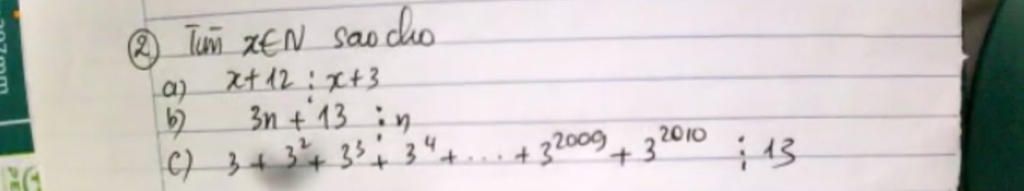 ② Tìm x∈N sao cho
a) x+12 ⋮ x+3
b) 3n + 13 ⋮ n
c) 3 + 3² + 3³ + 3⁴ + .... + 3²⁰⁰⁹ + 3²⁰¹⁰ ⋮ 13